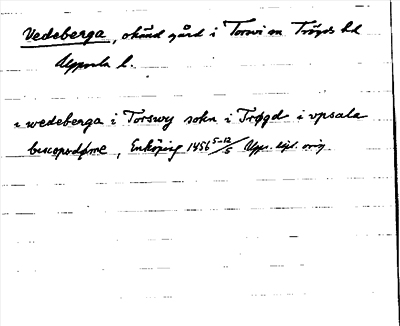 Vedeberga, okänd gård i Torsvi sn Trögds hd
Uppsala l.
i wedeberga i Torswy sokn i Trøgd i vpsala
biscopsdøme, Enköping 1456 5-12/5 Upps. dipl. orig.